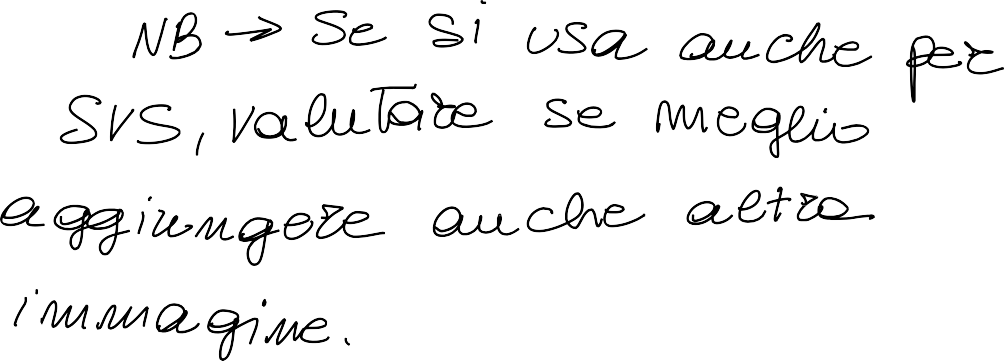 NB → Se si usa anche per
SVS, valutare se meglio
aggiungere anche altra
immagine.